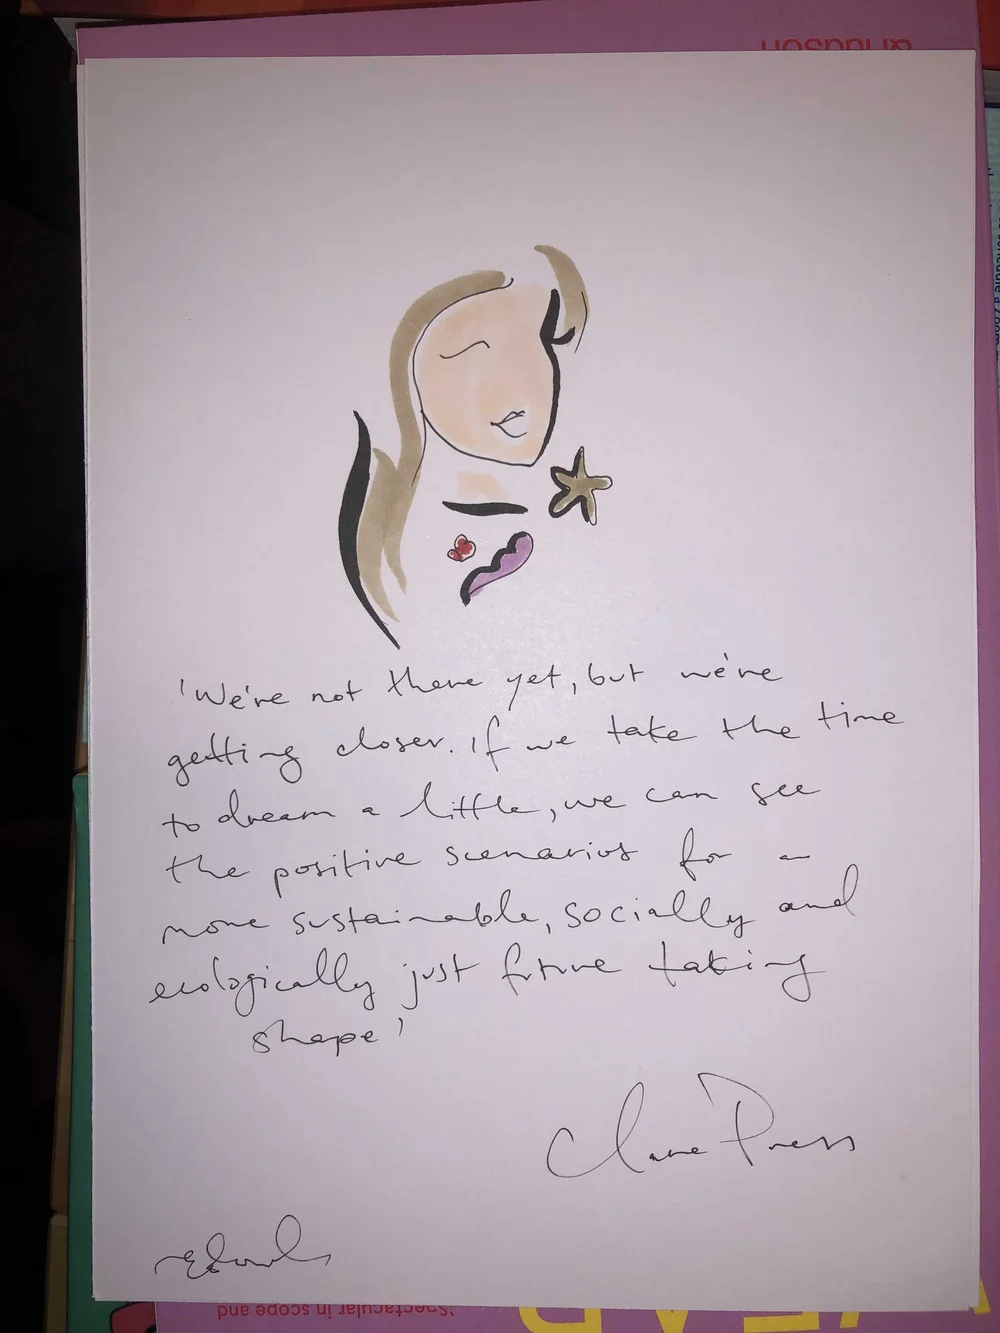 & Hudson
'We're not there yet, but we're
getting closer. If we take the time
to dream a little, we can see
the positive scenarios for a
more sustainable, socially and
ecologically just future taking
shape'
Clare Press
'Spectacular in scope and